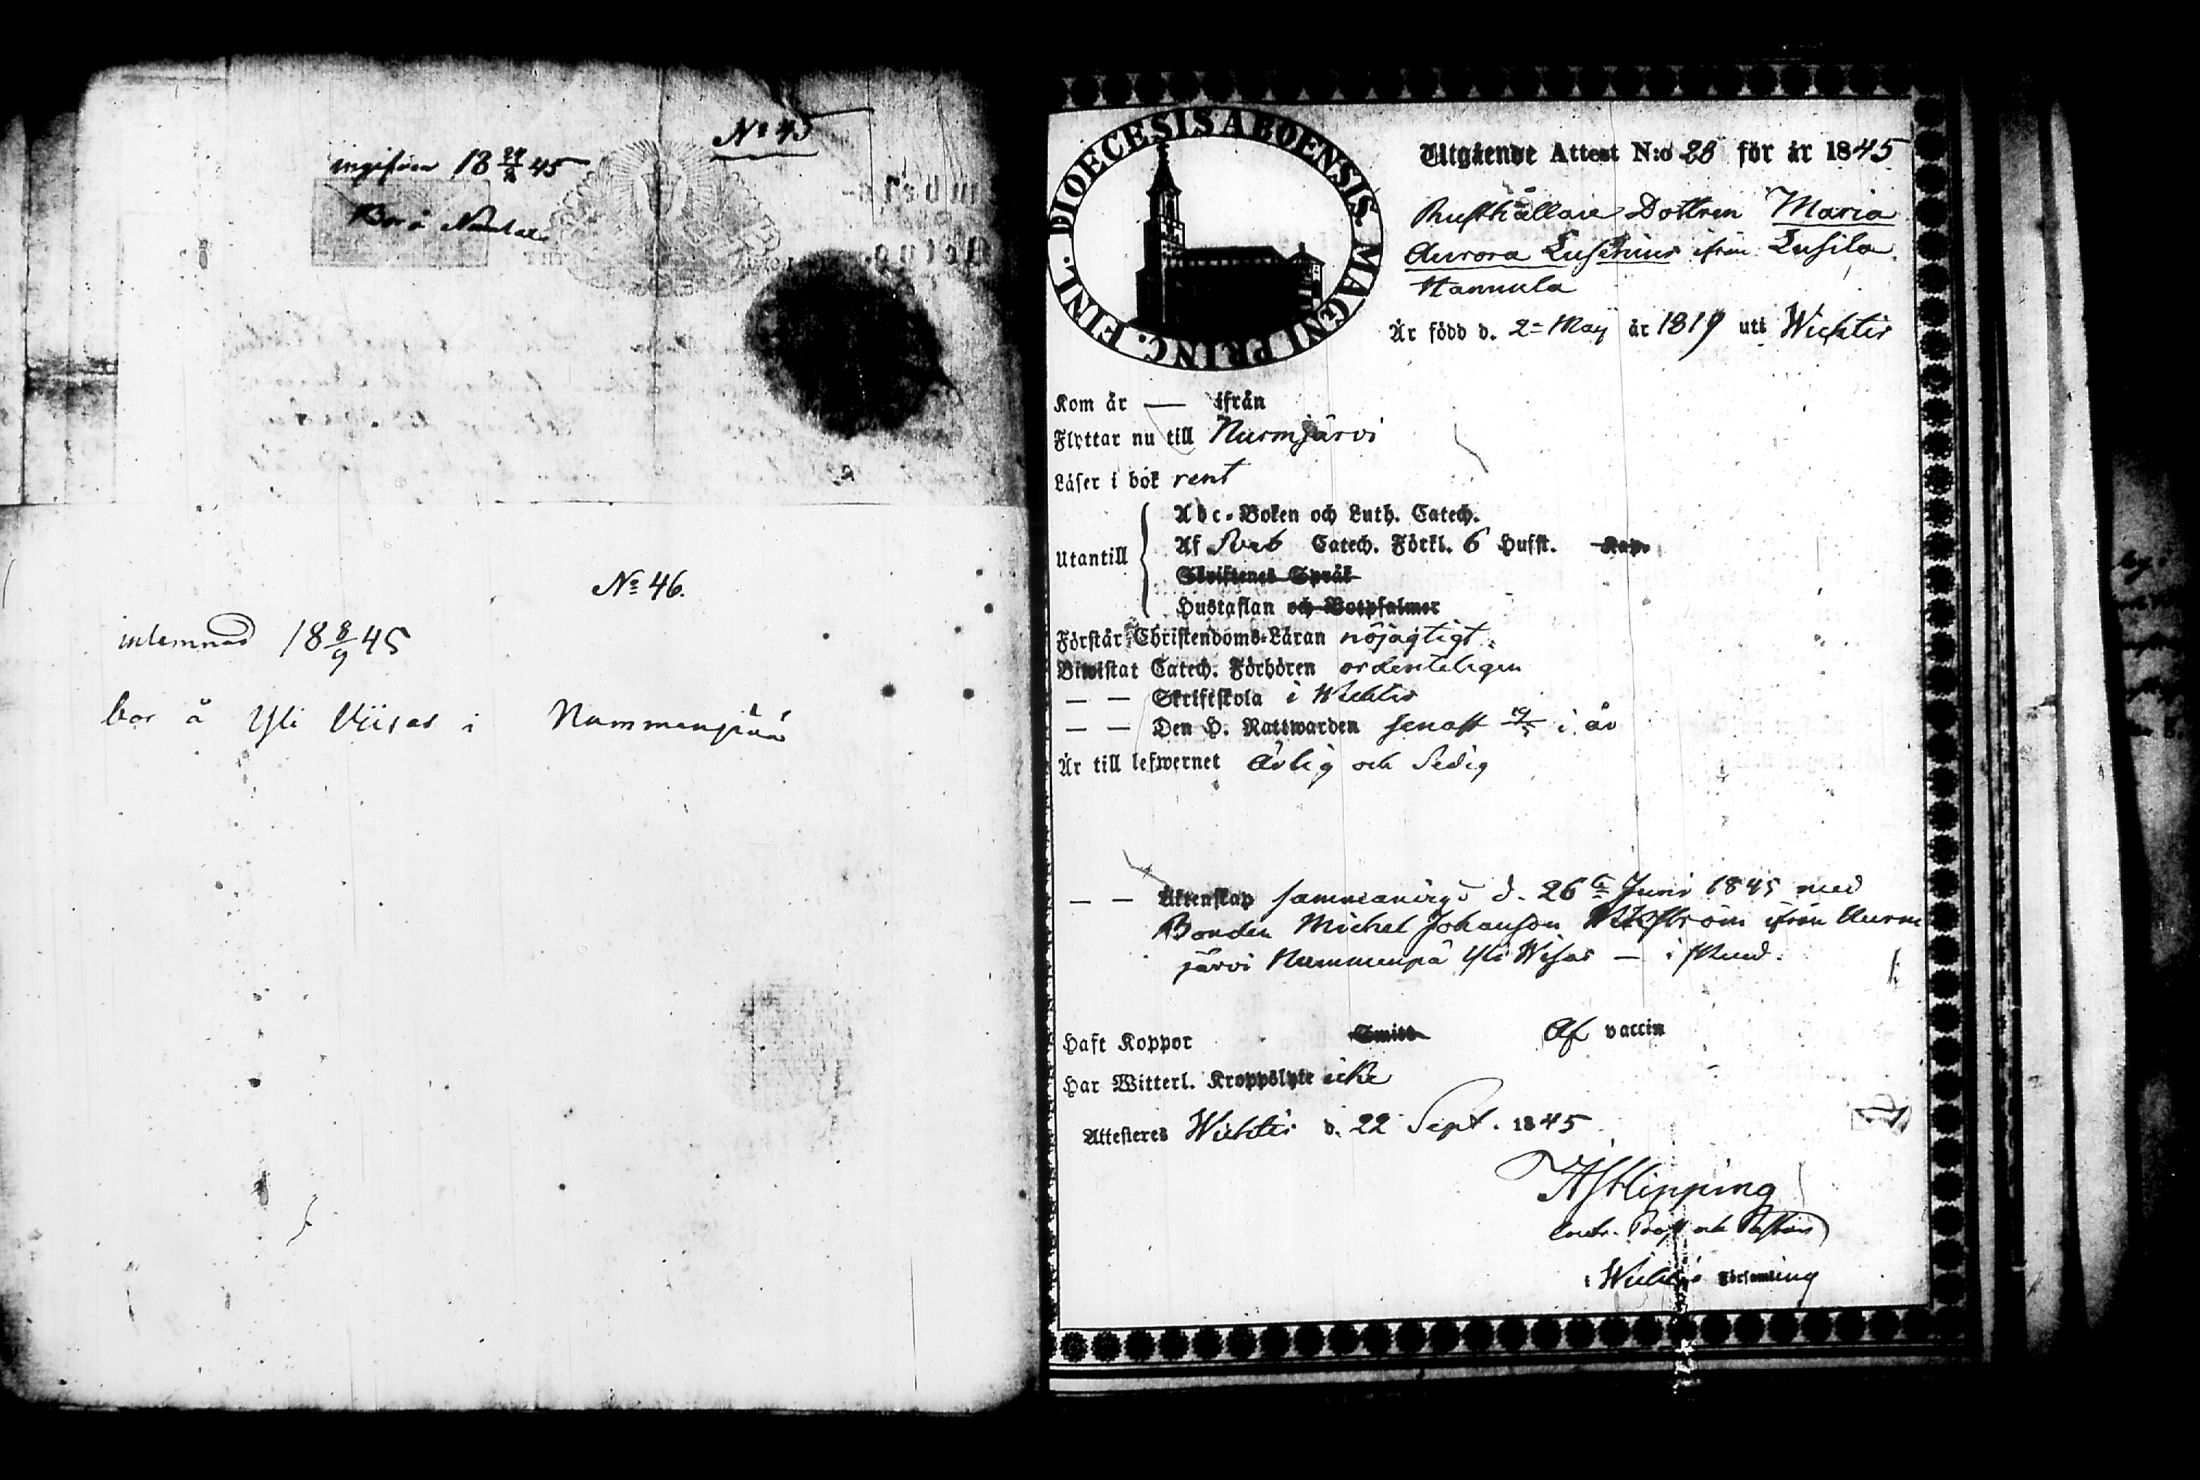 No 45
18 24/8 45
Bor å
No 46.
inlemnad 18 8/9 45
bor å Yli Wiisas i Nummenpää
DIOECESIS ABOENSIS MAGNI PRINC. FINL.
Utgående Attest N:o 28 för år 1845
Rusthållare Dottren Maria
Aurora Lusenius ifrån Lusila
Hannula
Är född d. 2= May år 1819 uti Wichtis
Kom år — ifrån
Flyttar nu till Nurmjärvi
Läser i bok rent
Utantill
Abc-Boken och Luth. Catech.
Af Sveb Catech. Förkl. 6 Hufst.
Skriftenes Språk
Hustaflan och Botpsalmer
Förstår Christendoms-Läran nöjagtigt.
Biwistat Catech. Förhören ordenteligen
— — Skriftskola i Wichtis
— — Den H. Nattwarden senast i år
Är till lefwernet ärlig och sedig
— — Äktenskap sammanvigd d. 26te Juni 1845 med
Bonden Michel Johansson ifrån Nurm
järvi Nummenpä Yli Wisas —
Haft Koppor Smitt Af vaccin
Har Witterl. Kroppslyte icke
Attesteras Wichtis d. 22 Sept. 1845
Hipping
Contr. Prost och Pastor
i Wichtis Församling